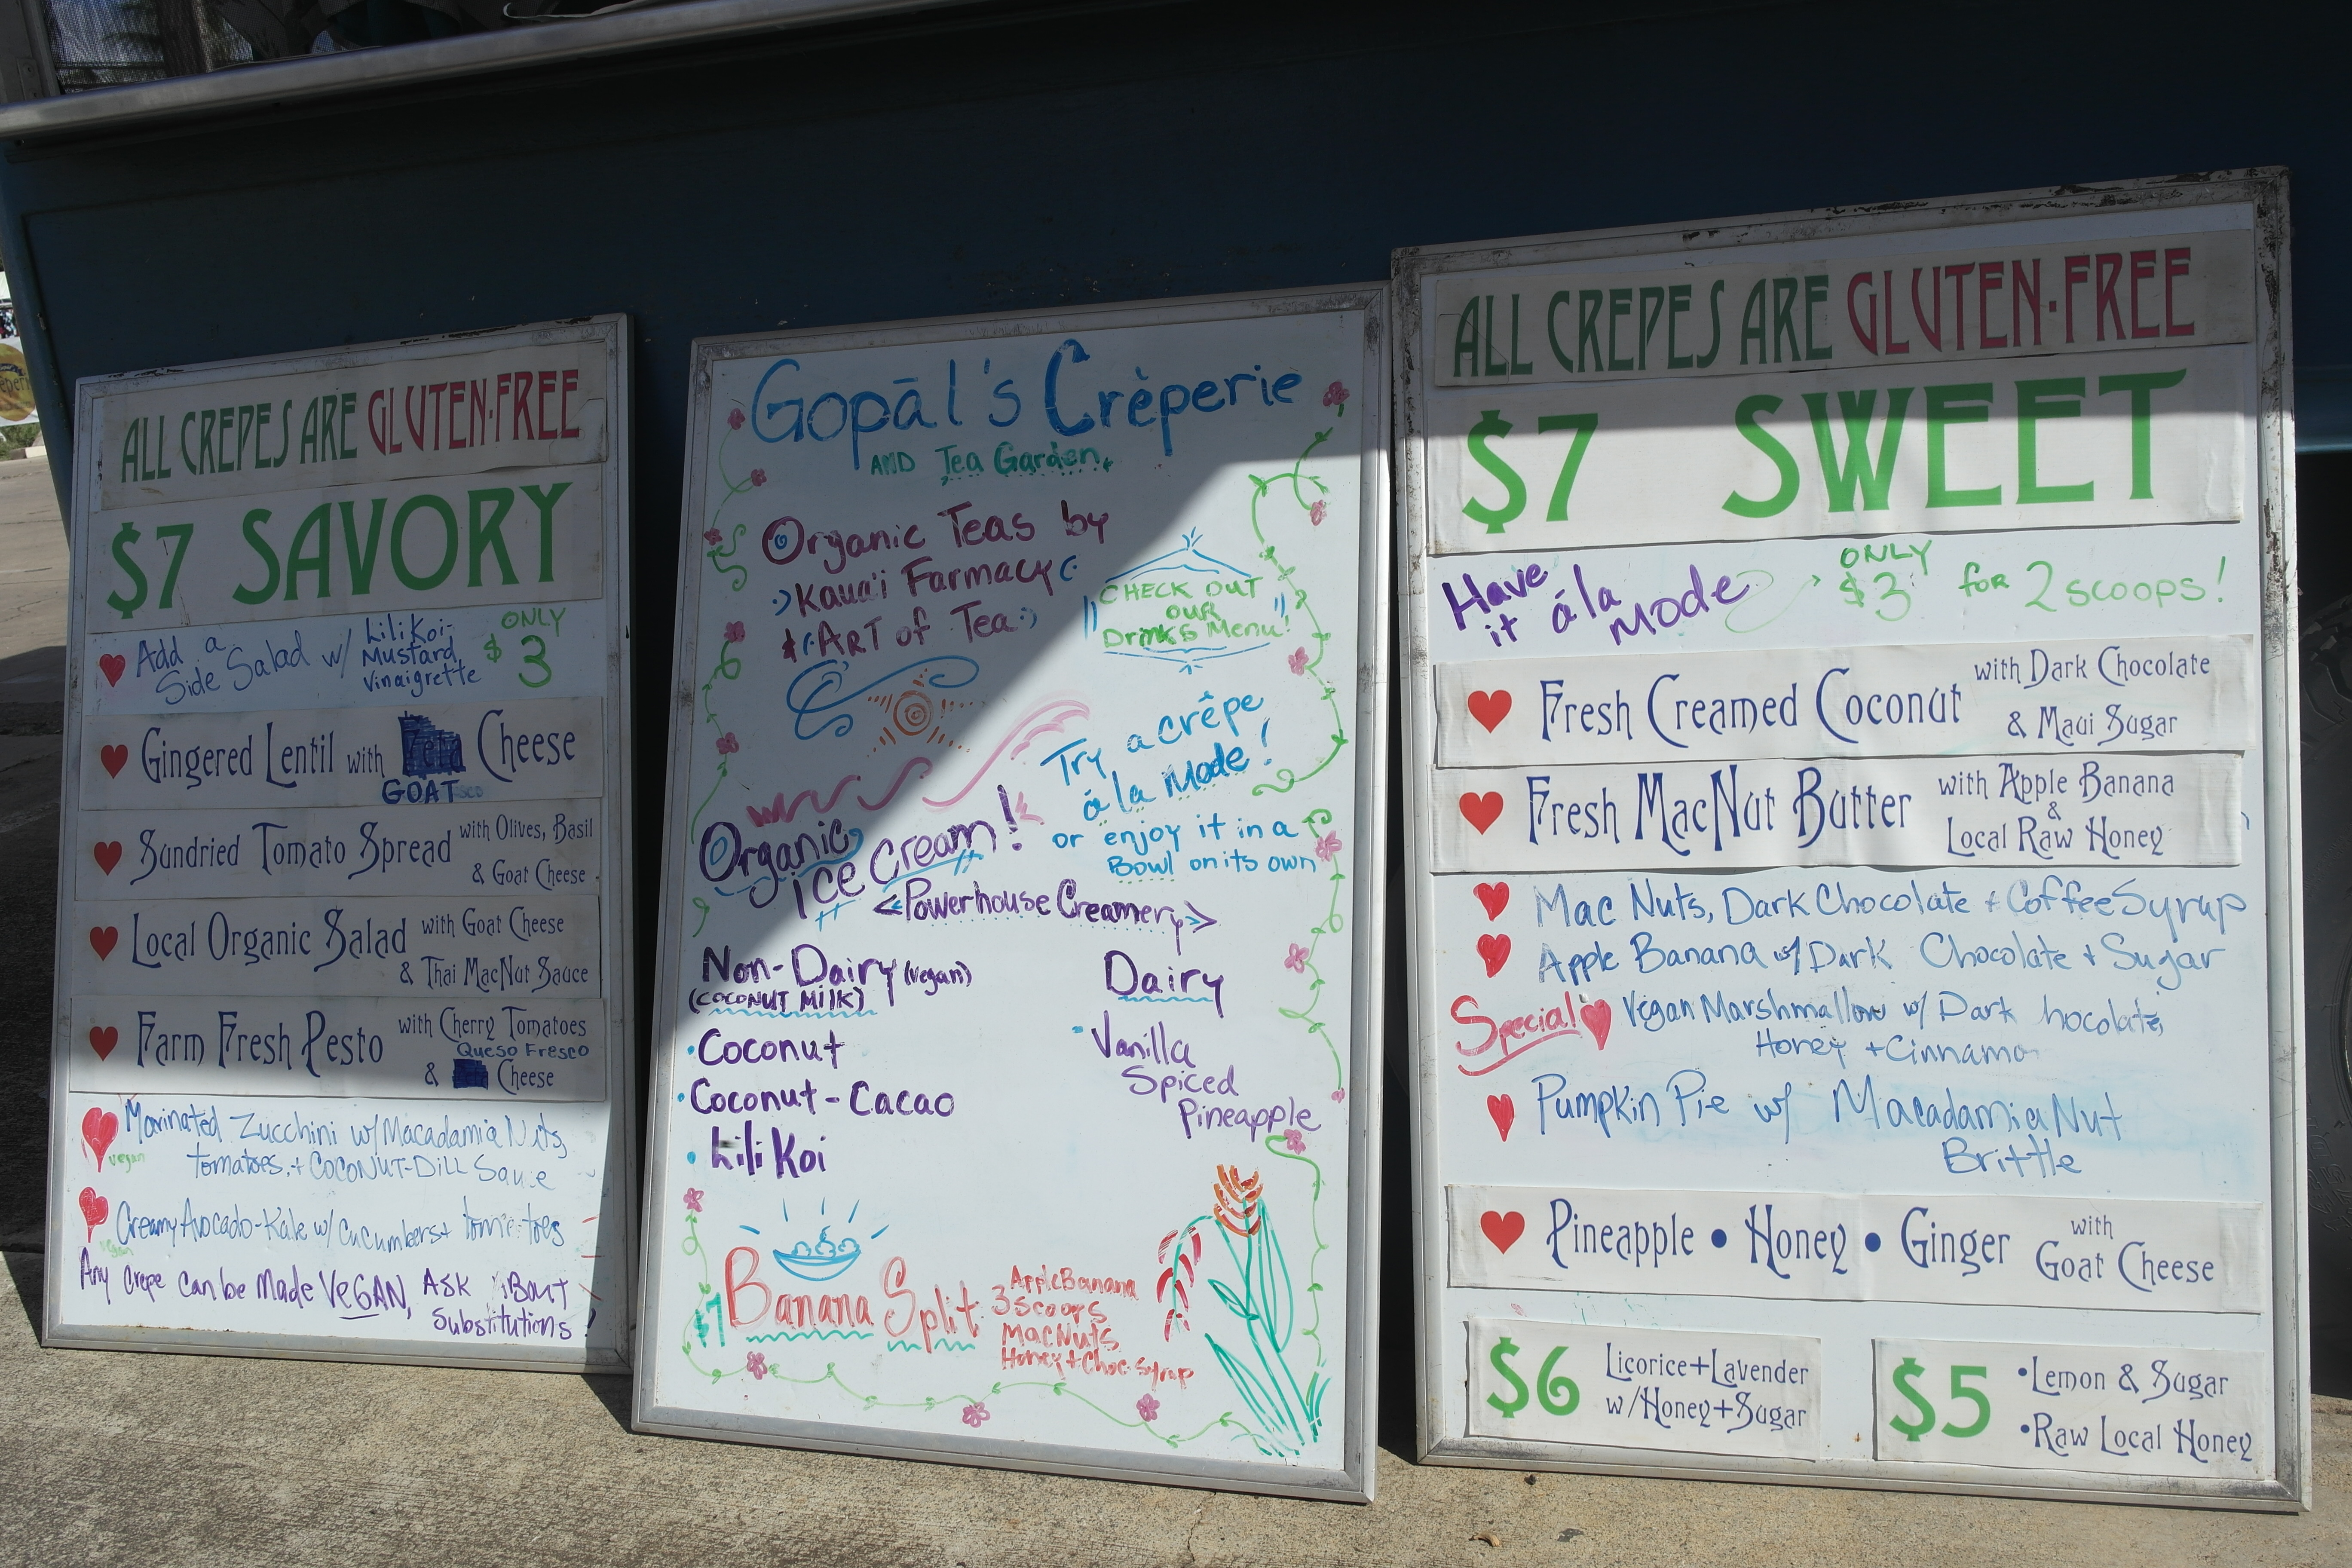 ALL CREPES ARE GLUTEN·FREE
$7 SAVORY
Add a Side Salad w/ Lilikoi-Mustard Vinaigrette ONLY $3
Gingered Lentil with Cheese
GOAT
Sundried Tomato Spread with Olives, Basil
& Goat Cheese
Local Organic Salad with Goat Cheese
& Thai MacNut Sauce
Farm Fresh Pesto with Cherry Tomatoes
Queso Fresco
& Cheese
Marinated Zucchini w/ Macadamia Nuts,
vegan tomatoes, + COCONUT-DiLL Sauce
Creamy Avocado-Kale w/ Cucumbers + tomatoes
vegan
Any Crepe Can be Made VEGAN, ASK ABOUT
Substitutions!
Gopāl's Crèperie
AND Tea Garden
Organic Teas by
Kaua'i Farmacy
& ART of Tea
CHECK OUT
OUR
Drinks Menu!
Try a crêpe
á la Mode!
or enjoy it in a
Bowl on its own
Organic
ice cream!
<Powerhouse Creamery>
Non-Dairy (vegan)
(COCONUT MILK)
·Coconut
·Coconut-Cacao
·LiliKoi
Dairy
Vanilla
Spiced
Pineapple
$7 Banana Split
Apple Banana
3 Scoops
MacNuts
Honey + Choc. Syrup
ALL CREPES ARE GLUTEN·FREE
$7 SWEET
Have it á la Mode ONLY $3 for 2 scoops!
Fresh Creamed Coconut with Dark Chocolate
& Maui Sugar
Fresh MacNut Butter with Apple Banana
&
Local Raw Honey
Mac Nuts, Dark Chocolate + Coffee Syrup
Apple Banana w/ Dark Chocolate + Sugar
Special Vegan Marshmallow w/ Dark hocolate,
Honey + Cinnamo
Pumpkin Pie w/ Macadamia Nut
Brittle
Pineapple • Honey • Ginger with
Goat Cheese
$6 Licorice+Lavender
w/Honey+Sugar
$5 •Lemon & Sugar
•Raw Local Honey